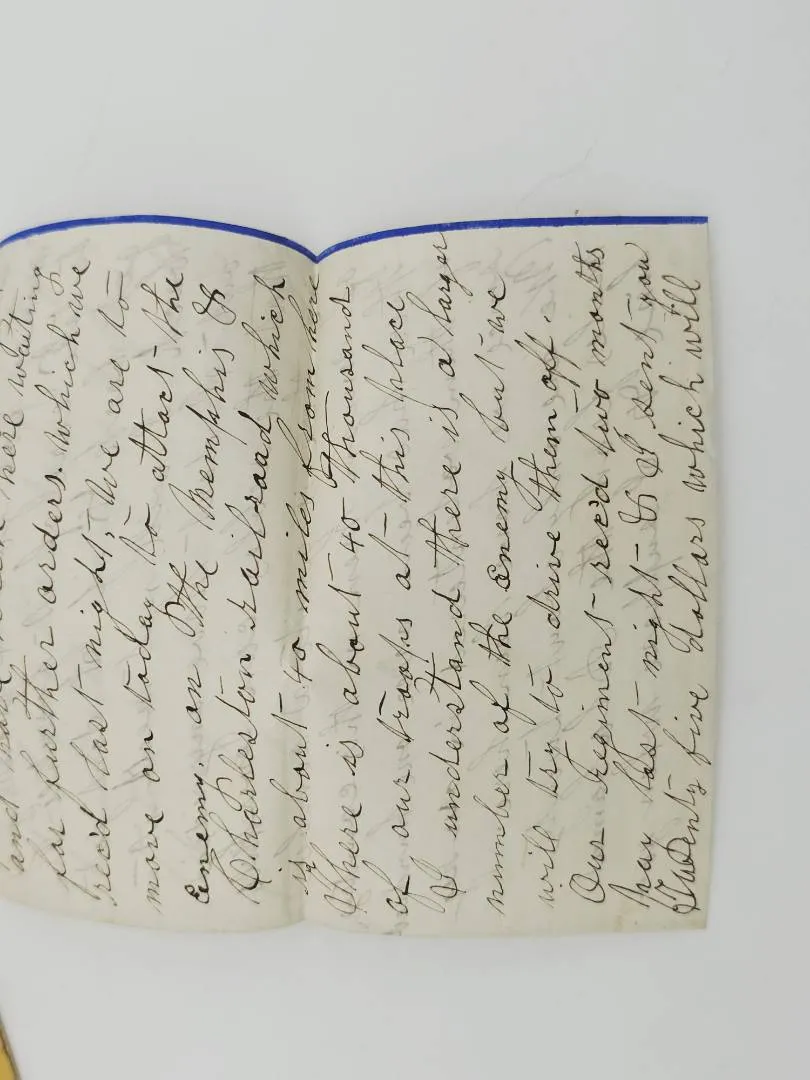 and have been here waiting
for further orders. which we
rec'd last night, we are to
move on today to attact the
Enemy. on The Memphis &
Charleston railroad which
is about 40 miles from here
There is about 40 Thousand
of our troops at this place
I understand there is a larger
number of the Enemy but we
will try to drive Them off.
Our Regiment rec'd two months
pay last night & I sent you
Twenty five dollars which will